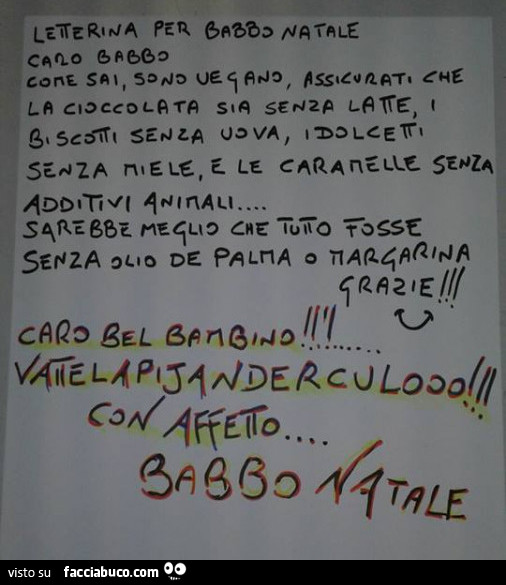 LETTERINA PER BABBO NATALE
CARO BABBO
COME SAI, SONO VEGANO, ASSICURATI CHE
LA CIOCCOLATA SIA SENZA LATTE, I
BISCOTTI SENZA UOVA, I DOLCETTI
SENZA MIELE, E LE CARAMELLE SENZA
ADDITIVI ANIMALI....
SAREBBE MEGLIO CHE TUTTO FOSSE
SENZA OLIO DE PALMA O MARGARINA
GRAZIE!!!
CARO BEL BAMBINO!!!!........
VATTELAPIJANDERCULOOO!!!...
CON AFFETTO....
BABBO NATALE
visto su facciabuco.com